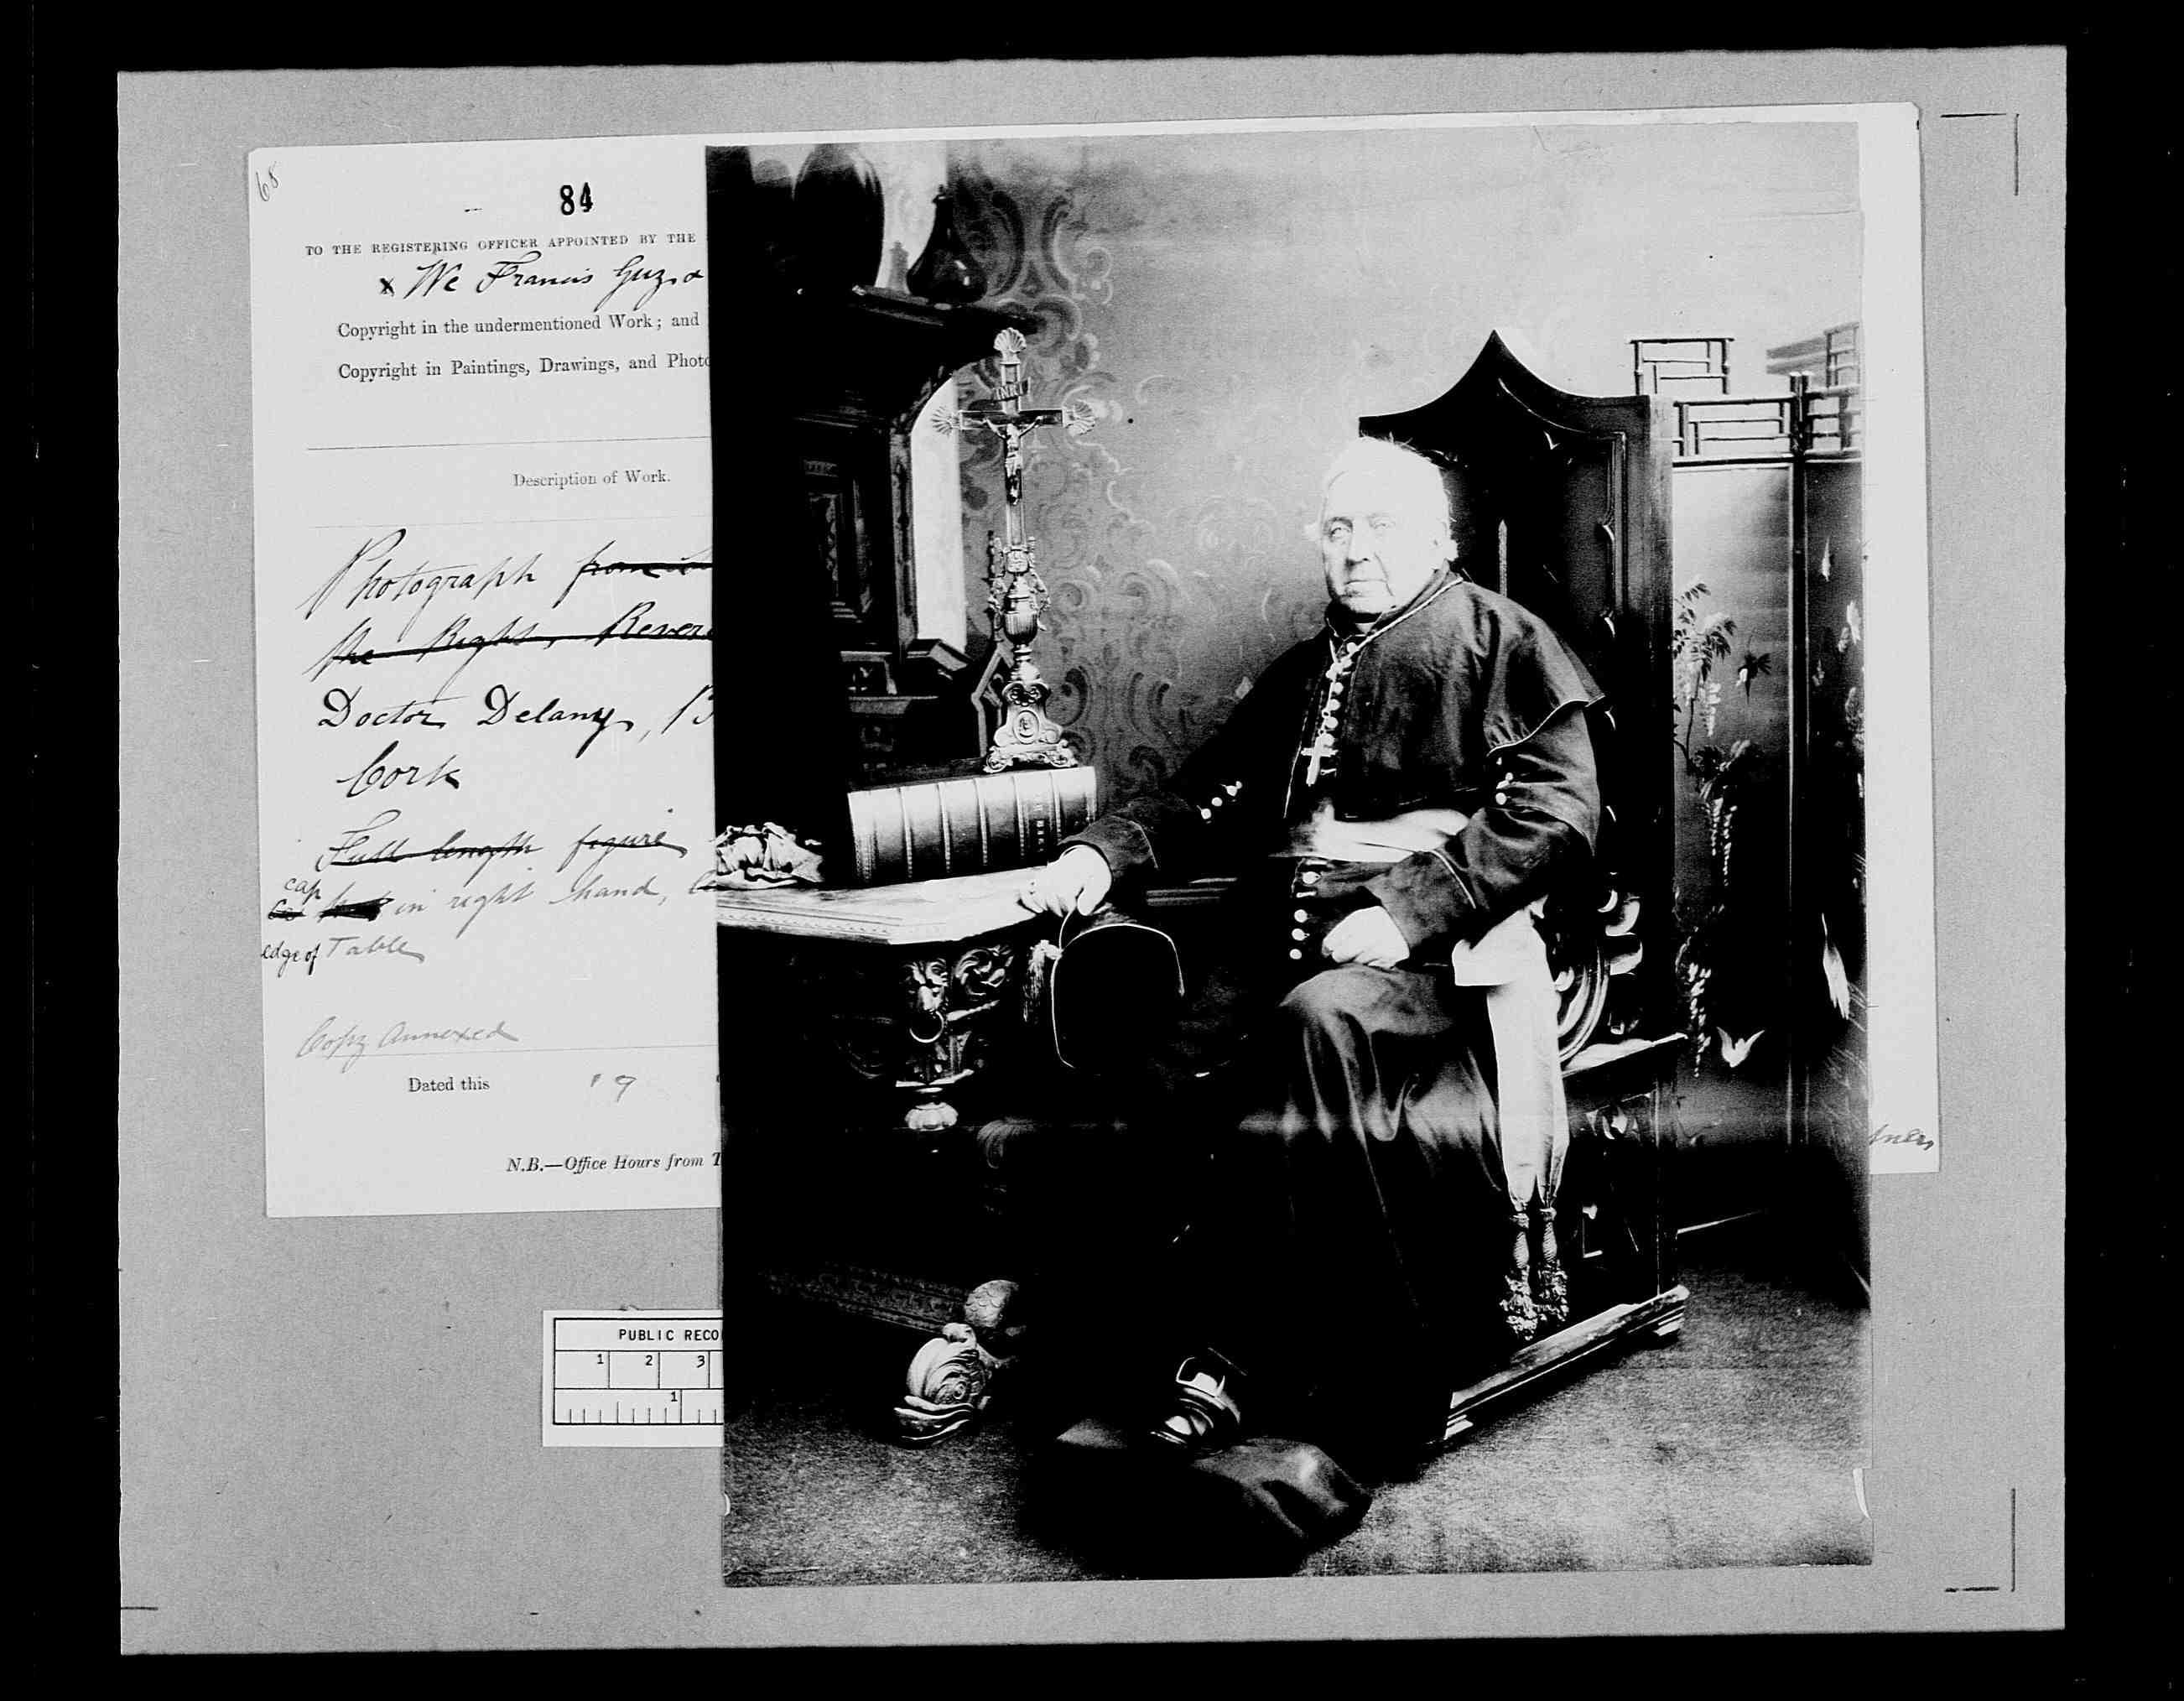 68
84
TO THE REGISTERING OFFICER APPOINTED BY THE
x We Francis Guy &
Copyright in the undermentioned Work; and
Copyright in Paintings, Drawings, and Photo
Description of Work.
Photograph from
the Right, Revere
Doctor Delany, B
Cork
Full length figure
cap
in right hand,
edge of Table
Copy Annexed
Dated this 19
N.B.—Office Hours from T
PUBLIC RECO
1 2 3
1
INRI